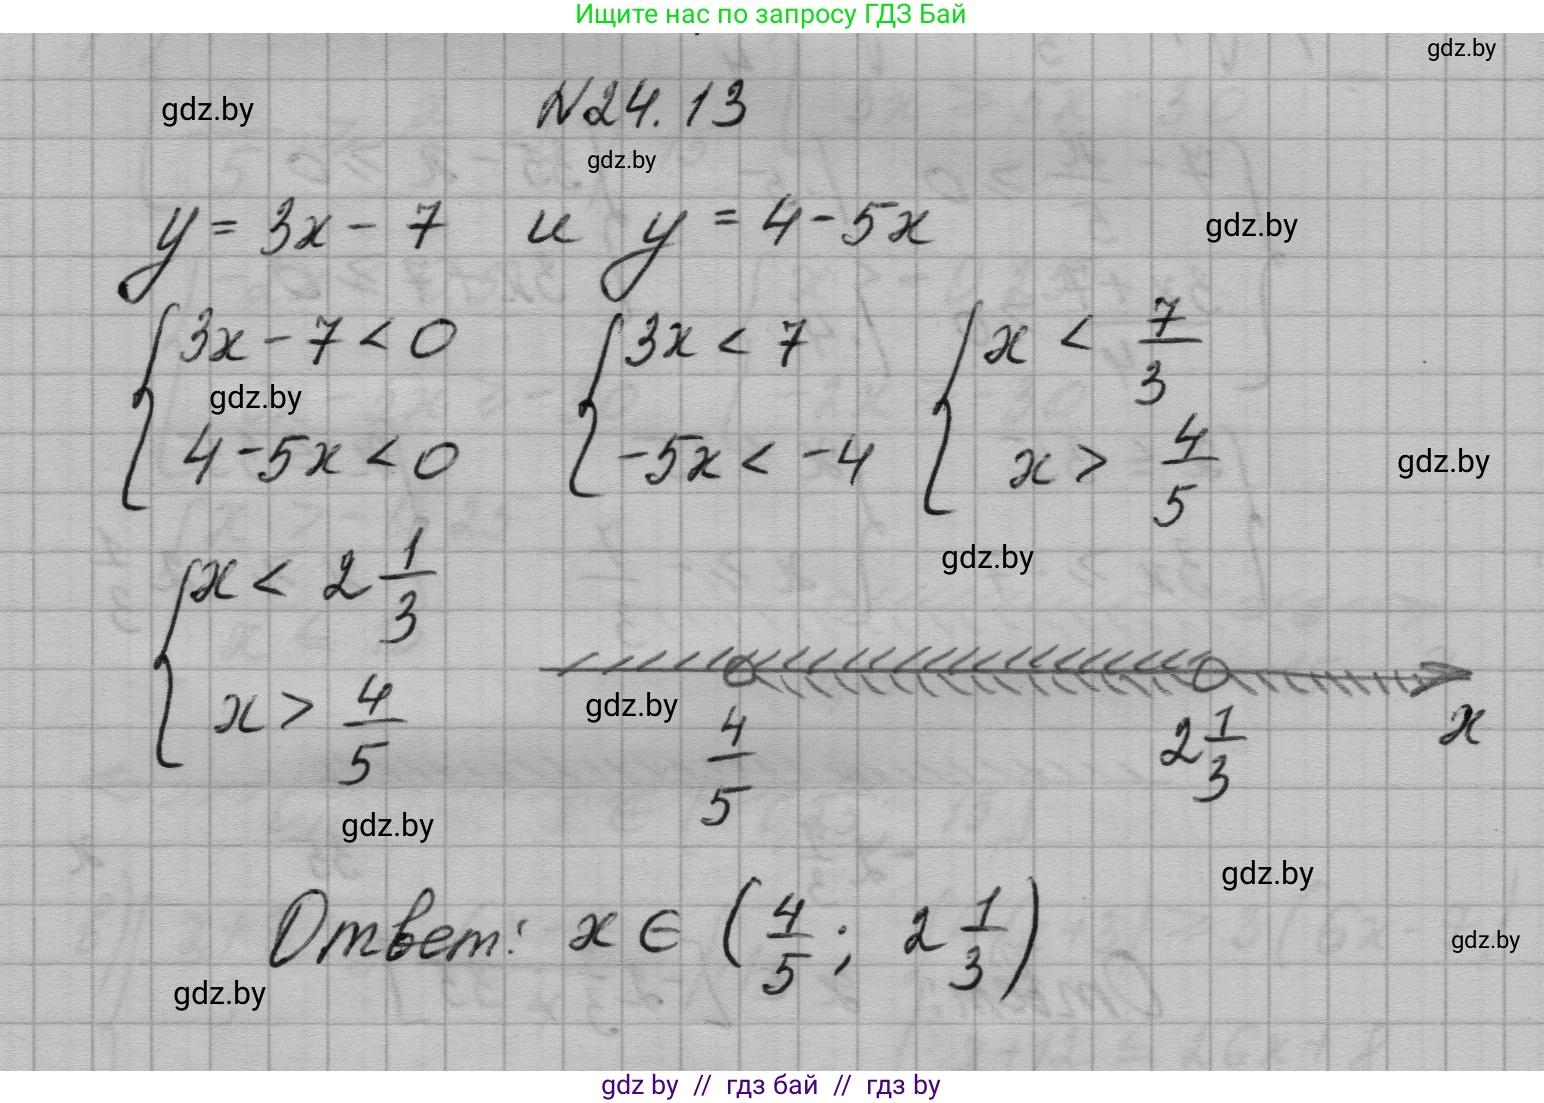 Ищите нас по запросу ГДЗ Бай
gdz.by
gdz.by
N24.13
gdz.by
y = 3x - 7 и y = 4 - 5x
gdz.by
{ 3x - 7 < 0 { 3x < 7 { x < 7/3
gdz.by
4 - 5x < 0 -5x < -4 x > 4/5
gdz.by
gdz.by
{ x < 2 1/3
x > 4/5
gdz.by
4/5 2 1/3 x
gdz.by
gdz.by
Ответ: x ∈ (4/5; 2 1/3)
gdz.by
gdz.by
gdz by // гдз бай // гдз by